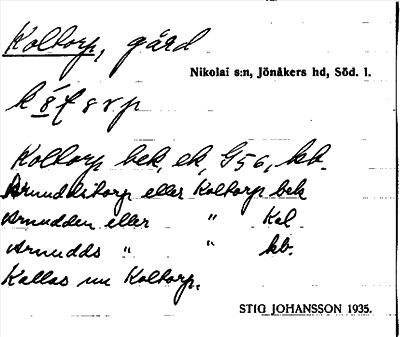 Koltorp, gård
Nikolai s:n, Jönåkers hd, Söd. l.
Koltorp bek, ek, G56, kb.
Arnuddstorp eller Koltorp bek
Arnudden eller " Kal
Arnudds " " kb.
Kallas nu Koltorp.
STIG JOHANSSON 1935.